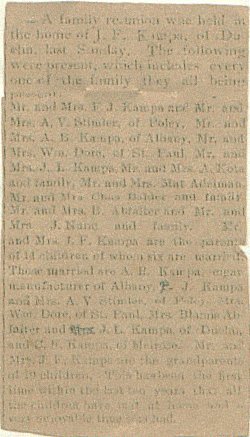 A family reunion was held at
the home of J. F. Kampa, of Du-
elm, last Sunday. The following
were present, which includes every
one of the family they all being
present:
Mr. and Mrs. F. J. Kampa and Mr. and
Mrs. A. V. Stinder, of Foley, Mr. and
Mrs. A. B. Kampa, of Albany, Mr. and
Mrs. Wm. Dore, of St. Paul, Mr. and
Mrs. J. L. Kampa, Mr. and Mrs. A. Kota
and family, Mr. and Mrs. Mat
Mr. and Mrs and family
Mr. and Mrs. B. and Mr. and
Mrs. J. and family. Mr.
and Mrs. J. F. Kampa are the parents
of 14 children of whom six are married.
Those married are A. B. Kampa, cigar
manufacturer of Albany, F. J. Kampa
and Mrs. A. V. Stinder, of Foley, Mrs.
Wm. Dore, of St. Paul, Mrs.
and Mrs. J. L. Kampa, of Duelm,
and Kampa, of Melrose. Mr. and
Mrs. J. F. Kampa are the grandparents
of children. This has been the first
time within the last ten years that all
the children have met at home and a
very enjoyable time was had.